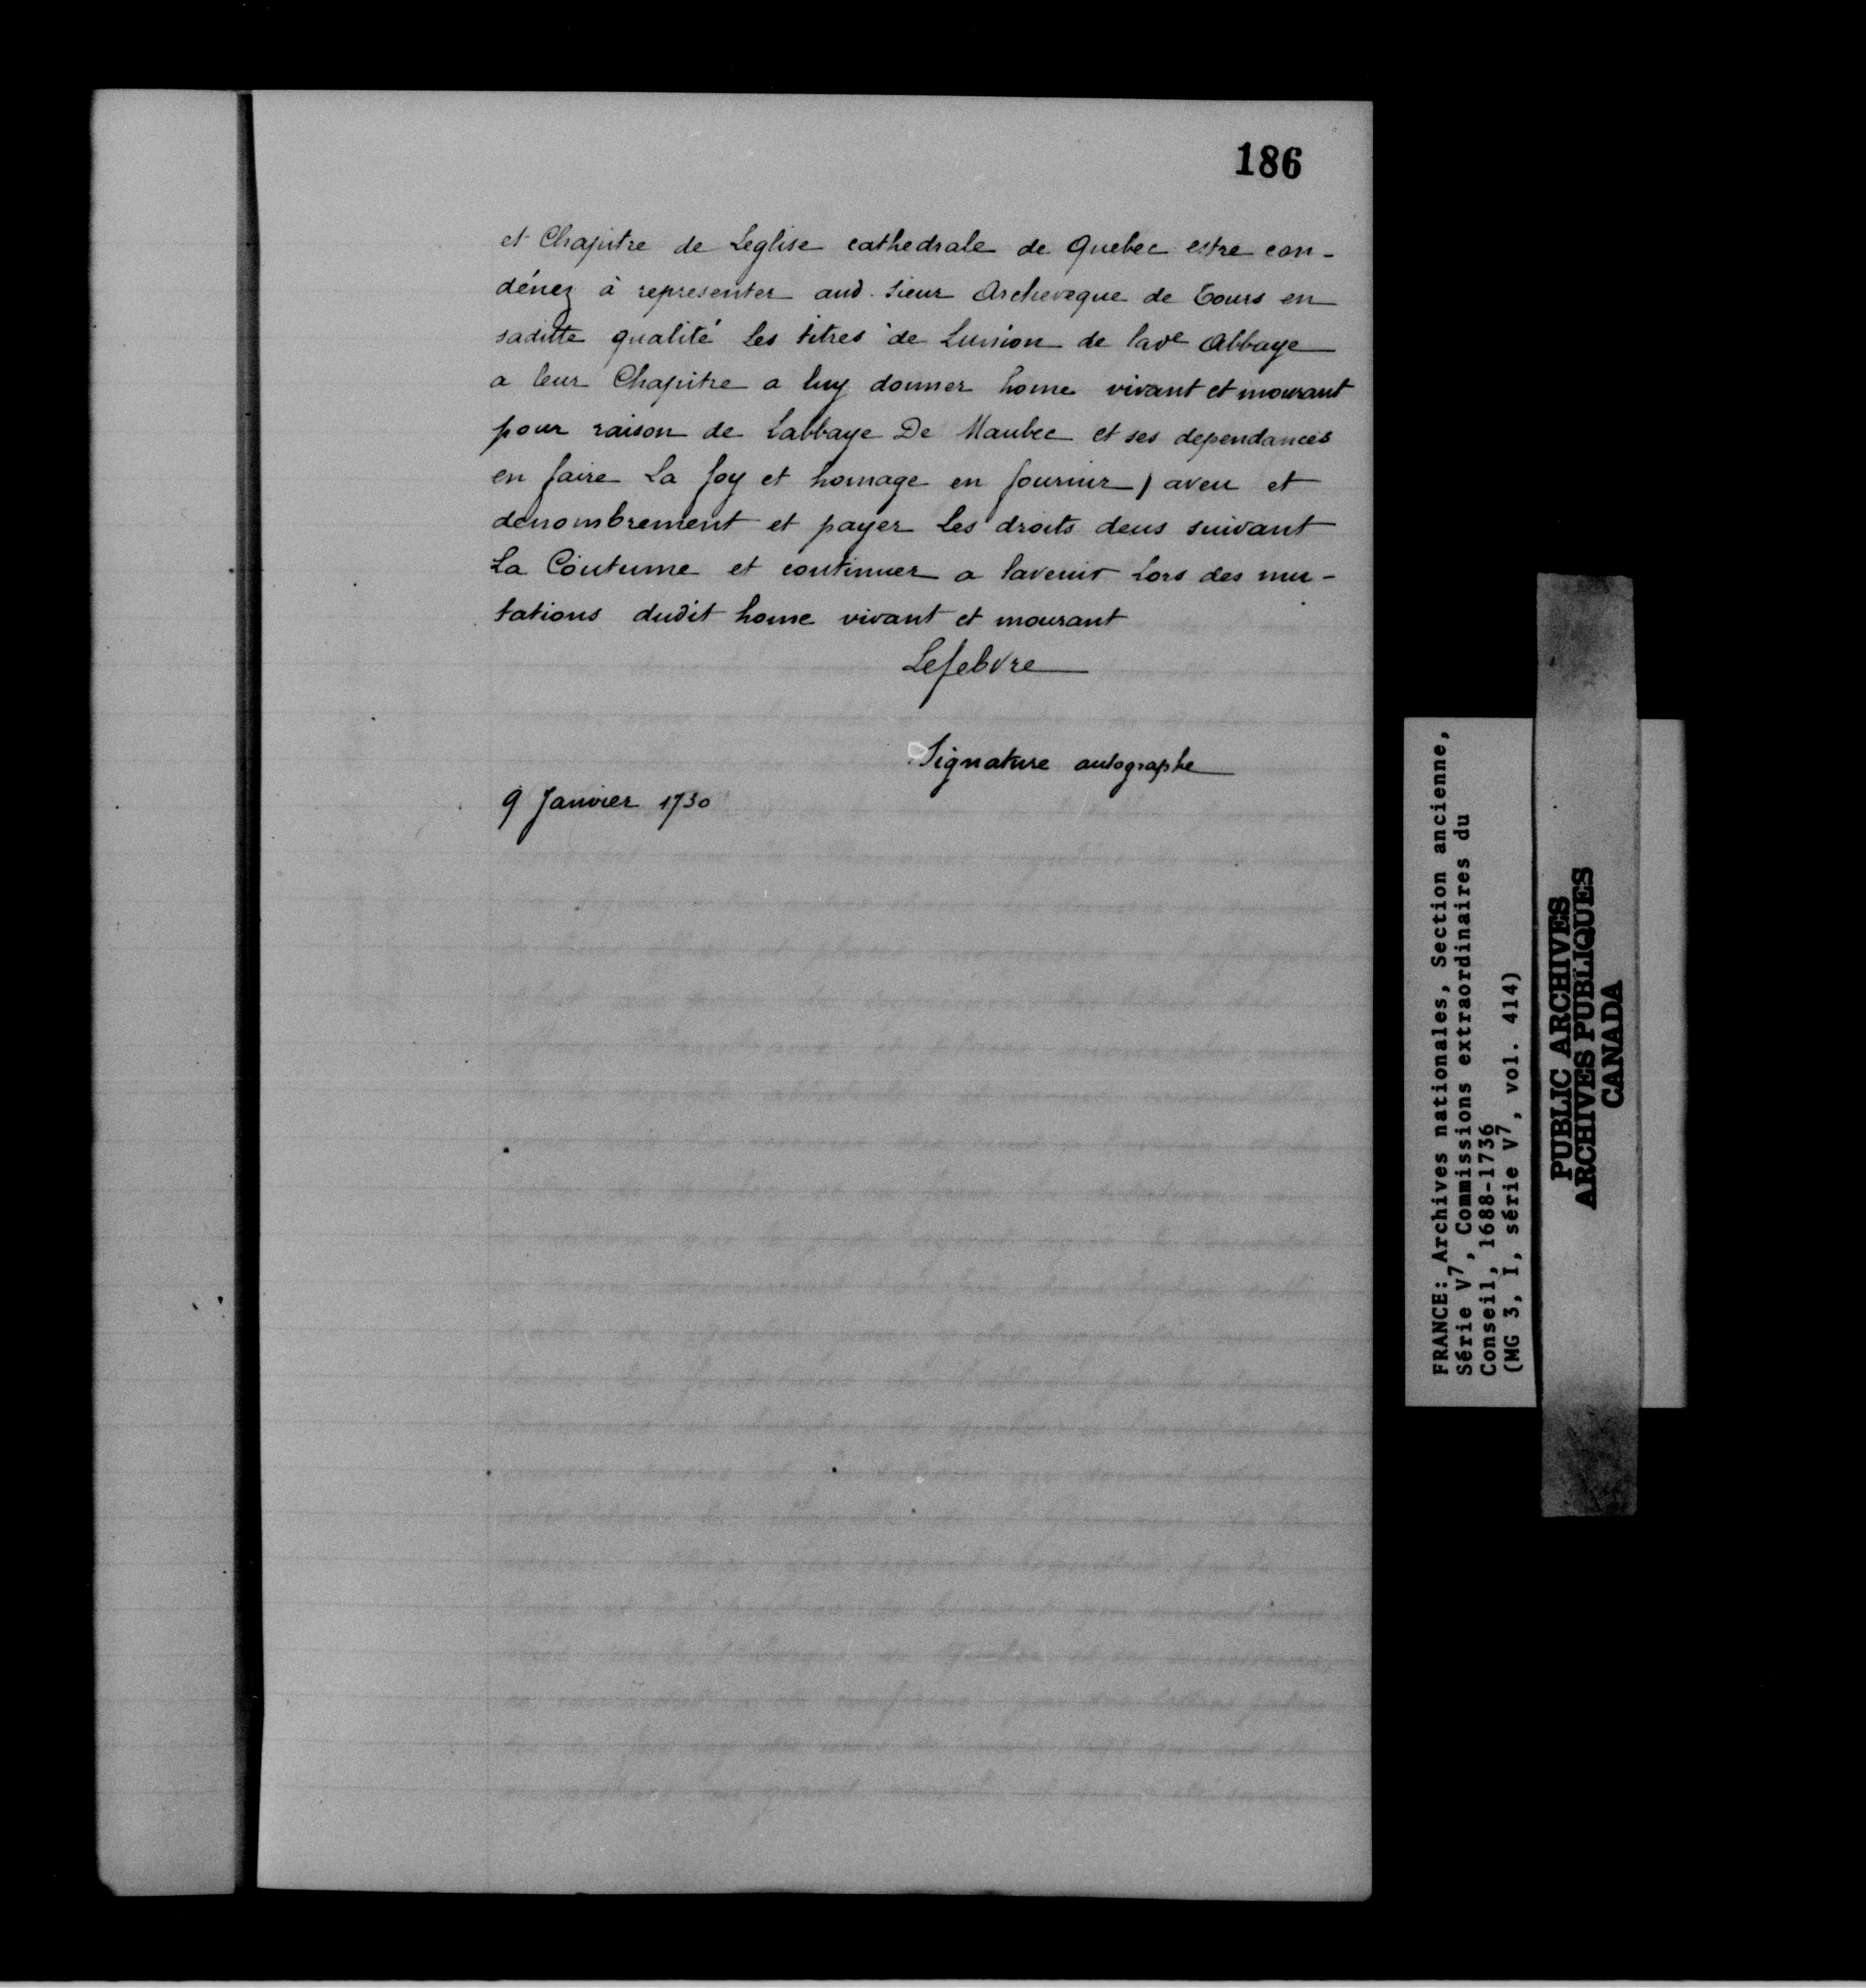 186
et Chapitre de Leglise cathedrale de Quebec estre con-
dénez à representer aud. sieur Archeveque de Tours en
saditte qualité les titres de Lunion de lade Abbaye
a leur Chapitre a luy donner home vivant et mourant
pour raison de Labbaye De Maubec et ses dependances
en faire La foy et homage en fournir) aveu et
denombrement et payer les droits deus suivant
La Coutume et continuer a lavenir Lors des mu-
tations dudit home vivant et mourant
Lefebvre
Signature autographe
9 Janvier 1730
FRANCE: Archives nationales, Section ancienne,
Série V7, Commissions extraordinaires du
Conseil, 1688-1736
(MG 3, I, série V7, vol. 414)
PUBLIC ARCHIVES
ARCHIVES PUBLIQUES
CANADA